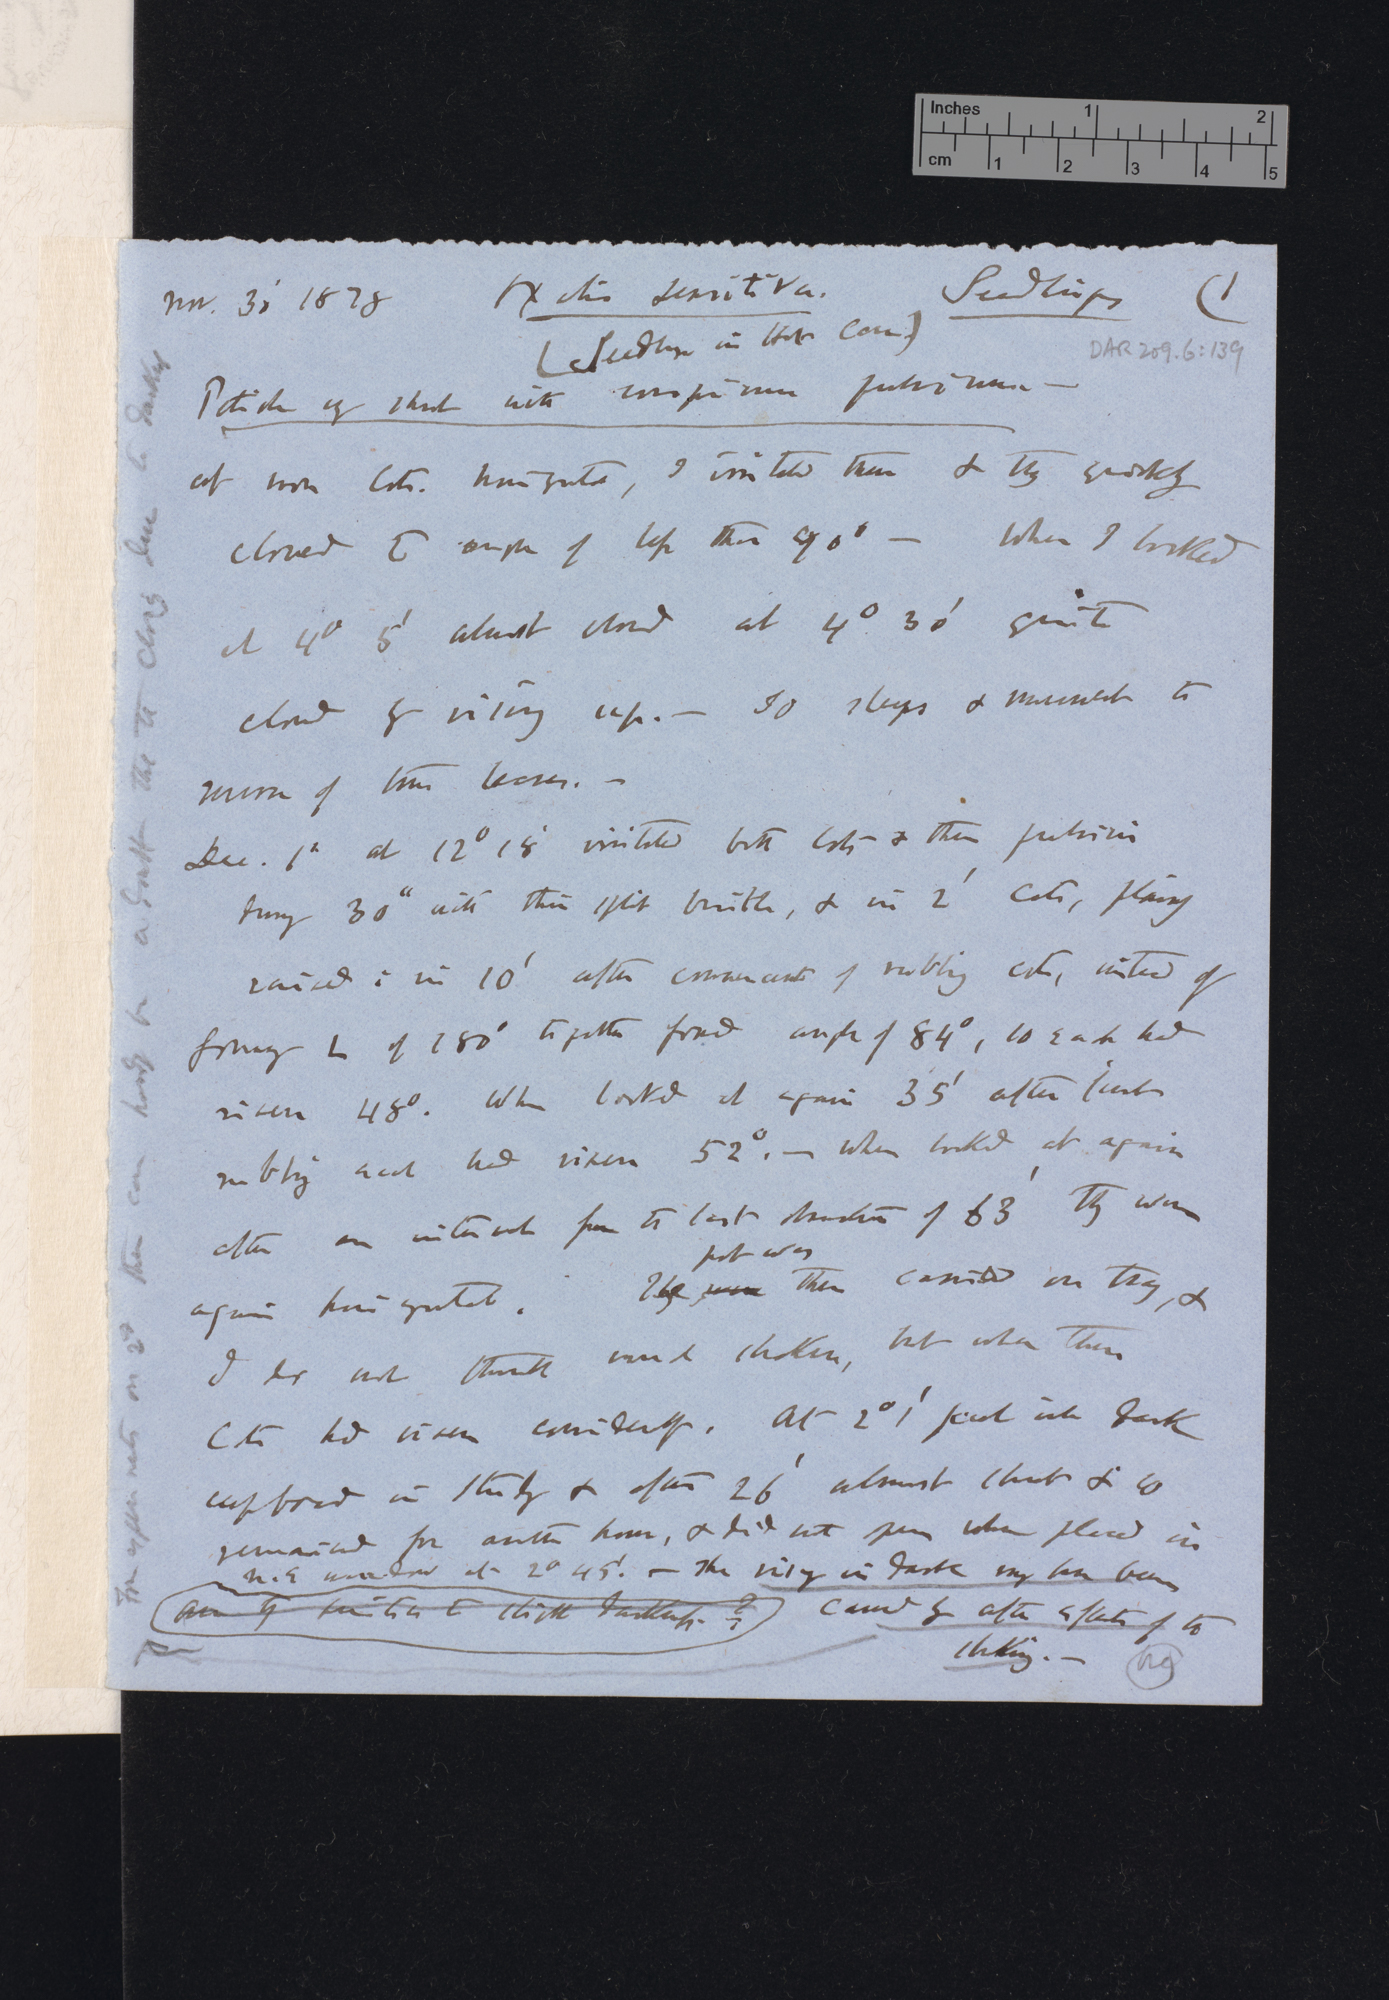 Inches 1 2
cm 1 2 3 4 5
Nov. 30 1878 Oxalis sensitiva. Seedlings (1
(Seedlings in Hot Case)
DAR 209.6:139
Petiole short with conspicuous pulvinus —
at noon Cots. horizontal, I irritated them & they quickly
closed to angle of less than 90° — When I looked
at 4° 5' almost closed at 4° 30' quite
closed by rising up. — So sleeps & movement the
reverse of true leaves. —
Dec. 1st at 12° 18' irritated both Cots & their pulvini
during 30" with thin split bristle, & in 2' Cots, plainly
raised; in 10' after commencement of rubbing cots, instead of
forming L of 180° together formed angle of 84°, so each had
risen 48°. When looked at again 35' after first
rubbing each had risen 52°. — when looked at again
after an interval from the last observation of 63' they were
again horizontal. They were pot was then carried on tray, &
I do not think much shaken, but when there
Cots had risen considerably. At 2° 1' placed in dark
cupboard in study & after 26' almost shut & so
remained for another hour, & did not open when placed in
N.E window at 2° 45'. — The rising in dark may have been
caused by after effects of the
shaking. —
From experiments on 2d there can hardly be a doubt that the closing due to darkness